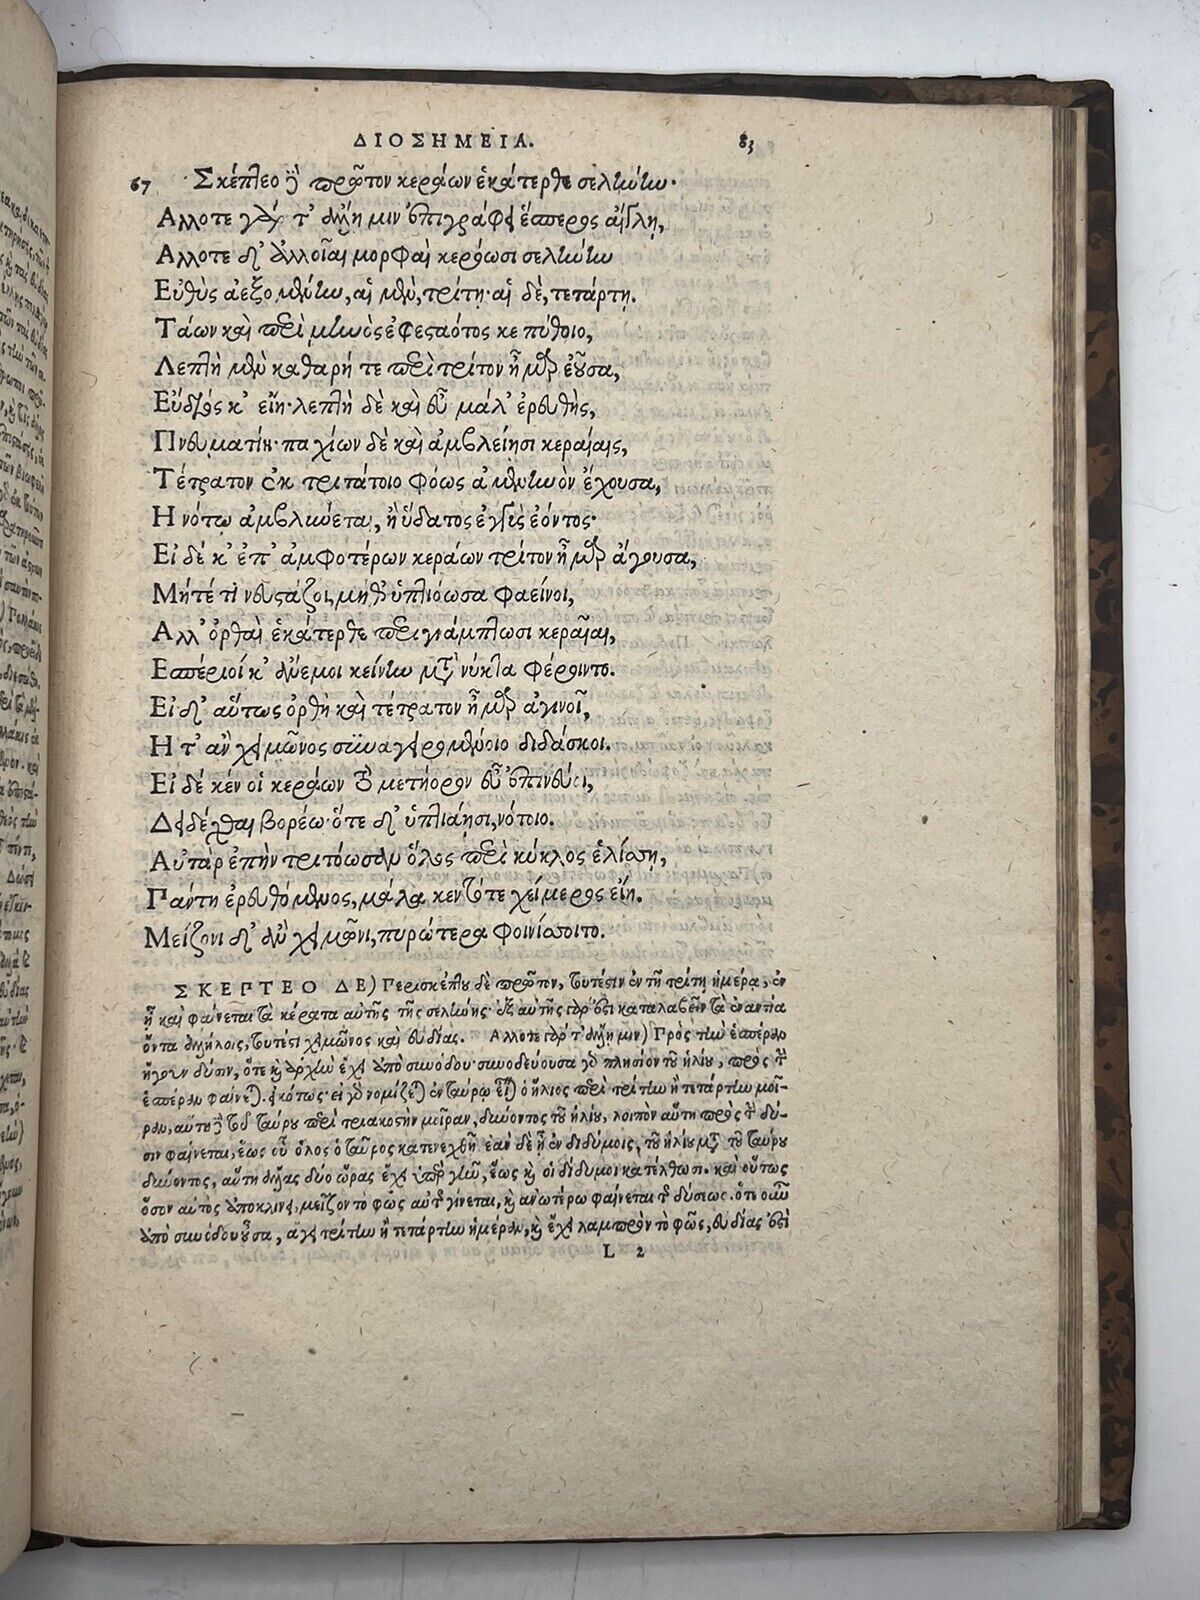 ΔΙΟΣΗΜΕΙΑ. 83
67 Σκέπτεο δὲ πρῶτον κεράων ἑκάτερθε σελήνην·
Αλλοτε γάρ τ' ἄλλη μιν ἐπιγράφει ἕσπερος αἴγλη,
Αλλοτε δ' ἀλλοῖαι μορφαὶ κερόωσι σελήνην
Εὐθὺς ἀεξομένην, αἱ μὲν, τρίτη· αἱ δὲ, τετάρτη.
Τάων καὶ περὶ μηνὸς ἐφεσταότος κε πύθοιο,
Λεπτὴ μὲν καθαρή τε περὶ τρίτον ἦμαρ ἐοῦσα,
Εὔδιός κ' εἴη· λεπτὴ δὲ καὶ εὖ μάλ' ἐρευθὴς,
Πνευματίη· παχίων δὲ καὶ ἀμβλείησι κεραίαις,
Τέτρατον ἐκ τριτάτοιο φόως ἀμενηνὸν ἔχουσα,
Η νότῳ ἀμβλύνεται, ἢ ὕδατος ἐγγὺς ἐόντος·
Εἰ δέ κ' ἐπ' ἀμφοτέρων κεράων τρίτον ἦμαρ ἄγουσα,
Μήτέ τι νευστάζοι, μηδ' ὑπτιόωσα φαείνοι,
Αλλ' ὀρθαὶ ἑκάτερθε περιγνάμπτωσι κεραῖαι,
Εσπέριοί κ' ἄνεμοι κείνην μετὰ νύκτα φέροιντο.
Εἰ δ' αὔτως ὀρθὴ καὶ τέτρατον ἦμαρ ἀγινοῖ,
Η τ' ἂν χειμῶνος συναγειρομένοιο διδάσκοι.
Εἰ δέ κέν οἱ κεράων τὸ μετήορον εὖ ἐπινεύῃ,
Δειδέχθαι βορέω· ὅτε δ' ὑπτιάησι, νότοιο.
Αὐτὰρ ἐπὴν τριτόωσαν ὅλος περὶ κύκλος ἑλίσσῃ,
Πάντη ἐρευθόμενος, μάλα κεν τότε χείμερος εἴη.
Μείζονι δ' ἂν χειμῶνι, πυρώτερα φοινίσσοιτο.
ΣΚΕΠΤΕΟ ΔΕ) Περισκέπτου δὲ πρῶτον, τουτέστιν ἐν τῇ τρίτῃ ἡμέρᾳ, ἐν
ᾗ καὶ φαίνεται τὰ κέρατα αὐτῆς τῆς σελήνης· ἐξ αὐτῆς γάρ ἐστι καταλαβεῖν τὰ ἐναντία
ὄντα ἀλλήλοις, τουτέστι χειμῶνος καὶ εὐδίας. Αλλοτε γάρ τ' ἄλλη μιν) Πρὸς τὴν ἑσπέραν
ἤγουν δύσιν, ὅτε καὶ ἀρχὴν ἔχει ἀπὸ συνόδου· συνοδεύουσα γὰρ πλησίον τοῦ ἡλίου, πρὸς τὴν
ἑσπέραν φαίνεται. εἰκότως· εἰ γὰρ νομίζεται ἐν ταύρῳ εἶναι ὁ ἥλιος περὶ τρίτην ἢ τετάρτην μοῖ-
ραν, αὐτοῦ δὲ τοῦ ταύρου περὶ τριακοστὴν μοῖραν, δύνοντος τοῦ ἡλίου, λοιπὸν αὕτη πρὸς τὴν δύ-
σιν φαίνεται, ἕως οὗ ὅλος ὁ ταῦρος κατενεχθῇ· ἐὰν δὲ ᾖ ἐν διδύμοις, τοῦ ἡλίου μετὰ τοῦ ταύρου
δύνοντος, αὕτη ἄλλας δύο ὥρας ἔχει ὑπὲρ γῆν, ἕως καὶ οἱ δίδυμοι κατέλθωσι. καὶ οὕτως
ὅσον αὐτὸς ἀποκλίνει, μεῖζον τὸ φῶς αὐτῆς γίνεται, καὶ ἀνωτέρω φαίνεται τῆς δύσεως. ὅτε οὖν
ἀπὸ συνόδου οὖσα, ἄγει τρίτην ἢ τετάρτην ἡμέραν, καὶ ἔχει λαμπρὸν τὸ φῶς, εὐδίας ἐστὶ
L 2